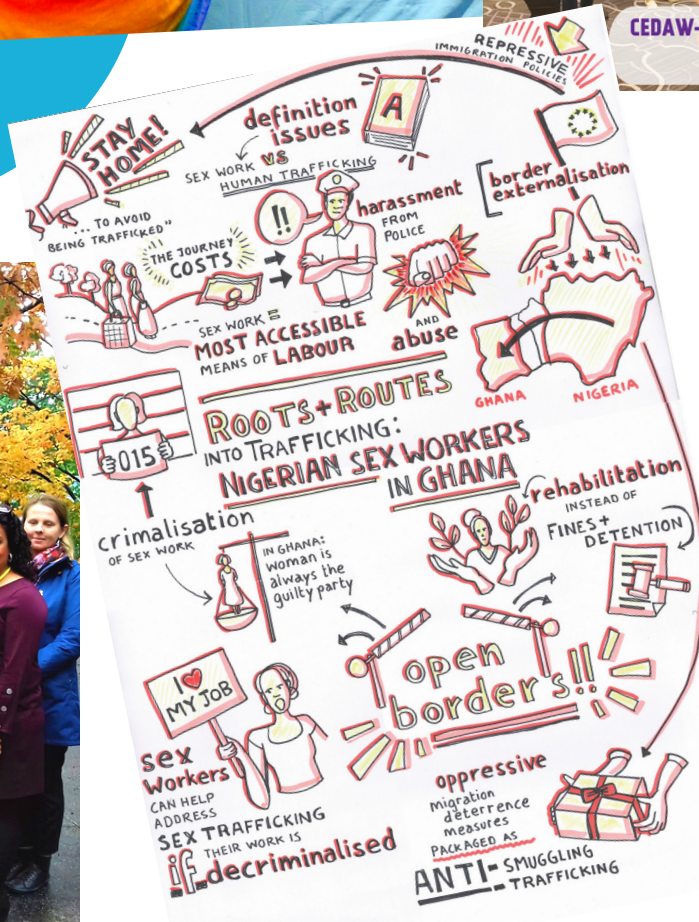 CEDAW-
REPRESSIVE
IMMIGRATION POLICIES
STAY
HOME!
... TO AVOID
BEING TRAFFICKED"
definition
issues
SEX WORK VS
HUMAN TRAFFICKING
A
border
externalisation
THE JOURNEY
COSTS
!!
harassment
FROM
POLICE
AND
abuse
SEX WORK =
MOST ACCESSIBLE
MEANS OF LABOUR
GHANA
NIGERIA
ROOTS + ROUTES
INTO TRAFFICKING:
NIGERIAN SEX WORKERS
IN GHANA
015
crimalisation
OF SEX WORK
IN GHANA:
woman is
always the
guilty party
rehabilitation
INSTEAD OF
FINES +
DETENTION
open
border's!!
I ❤ MY JOB
sex
workers
CAN HELP
ADDRESS
SEX TRAFFICKING
if THEIR WORK IS
decriminalised
oppressive
migration
deterrence
measures
PACKAGED AS
ANTI - SMUGGLING
- TRAFFICKING